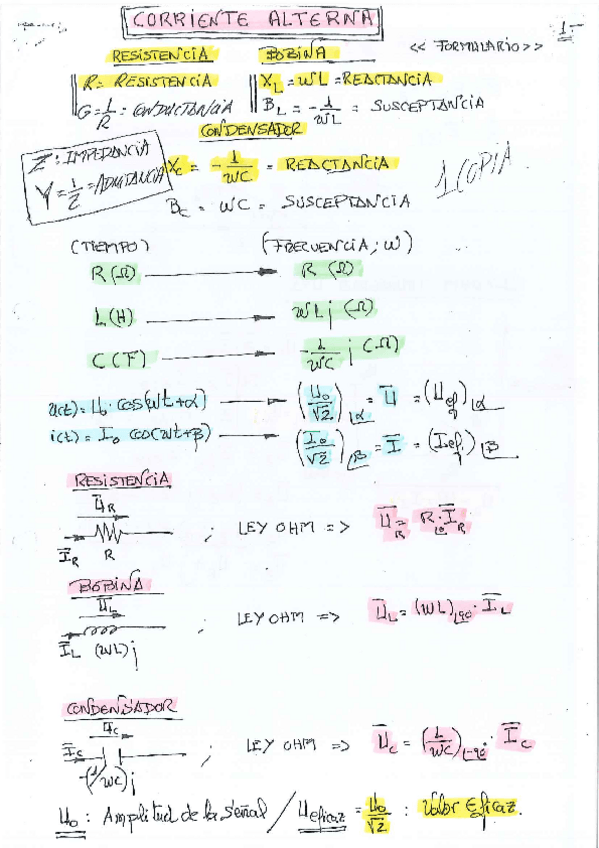 CORRIENTE ALTERNA
1-
<< FORMULARIO >>
RESISTENCIA BOBINA
R = RESISTENCIA X_L = WL = REACTANCIA
G = 1/R = CONDUCTANCIA B_L = -1/WL = SUSCEPTANCIA
CONDENSADOR
Z: IMPEDANCIA
Y = 1/Z = ADMITANCIA
X_C = -1/WC = REACTANCIA
1 COPIA
B_C = WC = SUSCEPTANCIA
(TIEMPO) (FRECUENCIA; W)
R (Ω) → R (Ω)
L (H) → WLj (Ω)
C (F) → -1/WC j (Ω)
u(t) = U₀·cos(wt+α) → (U₀/√2)|α = U = (Uef)|α
i(t) = I₀ cos(wt+β) → (I₀/√2)|β = I = (Ief)|β
RESISTENCIA
U_R
I_R R ; LEY OHM => U_R = R|0·I_R
BOBINA
U_L
I_L (WL)j ; LEY OHM => U_L = (WL)|90·I_L
CONDENSADOR
U_C
I_C ; LEY OHM => U_C = (1/WC)|-90·I_C
-(1/WC)j
U₀ : Amplitud de la señal / Ueficaz = U₀/√2 : Valor Eficaz.